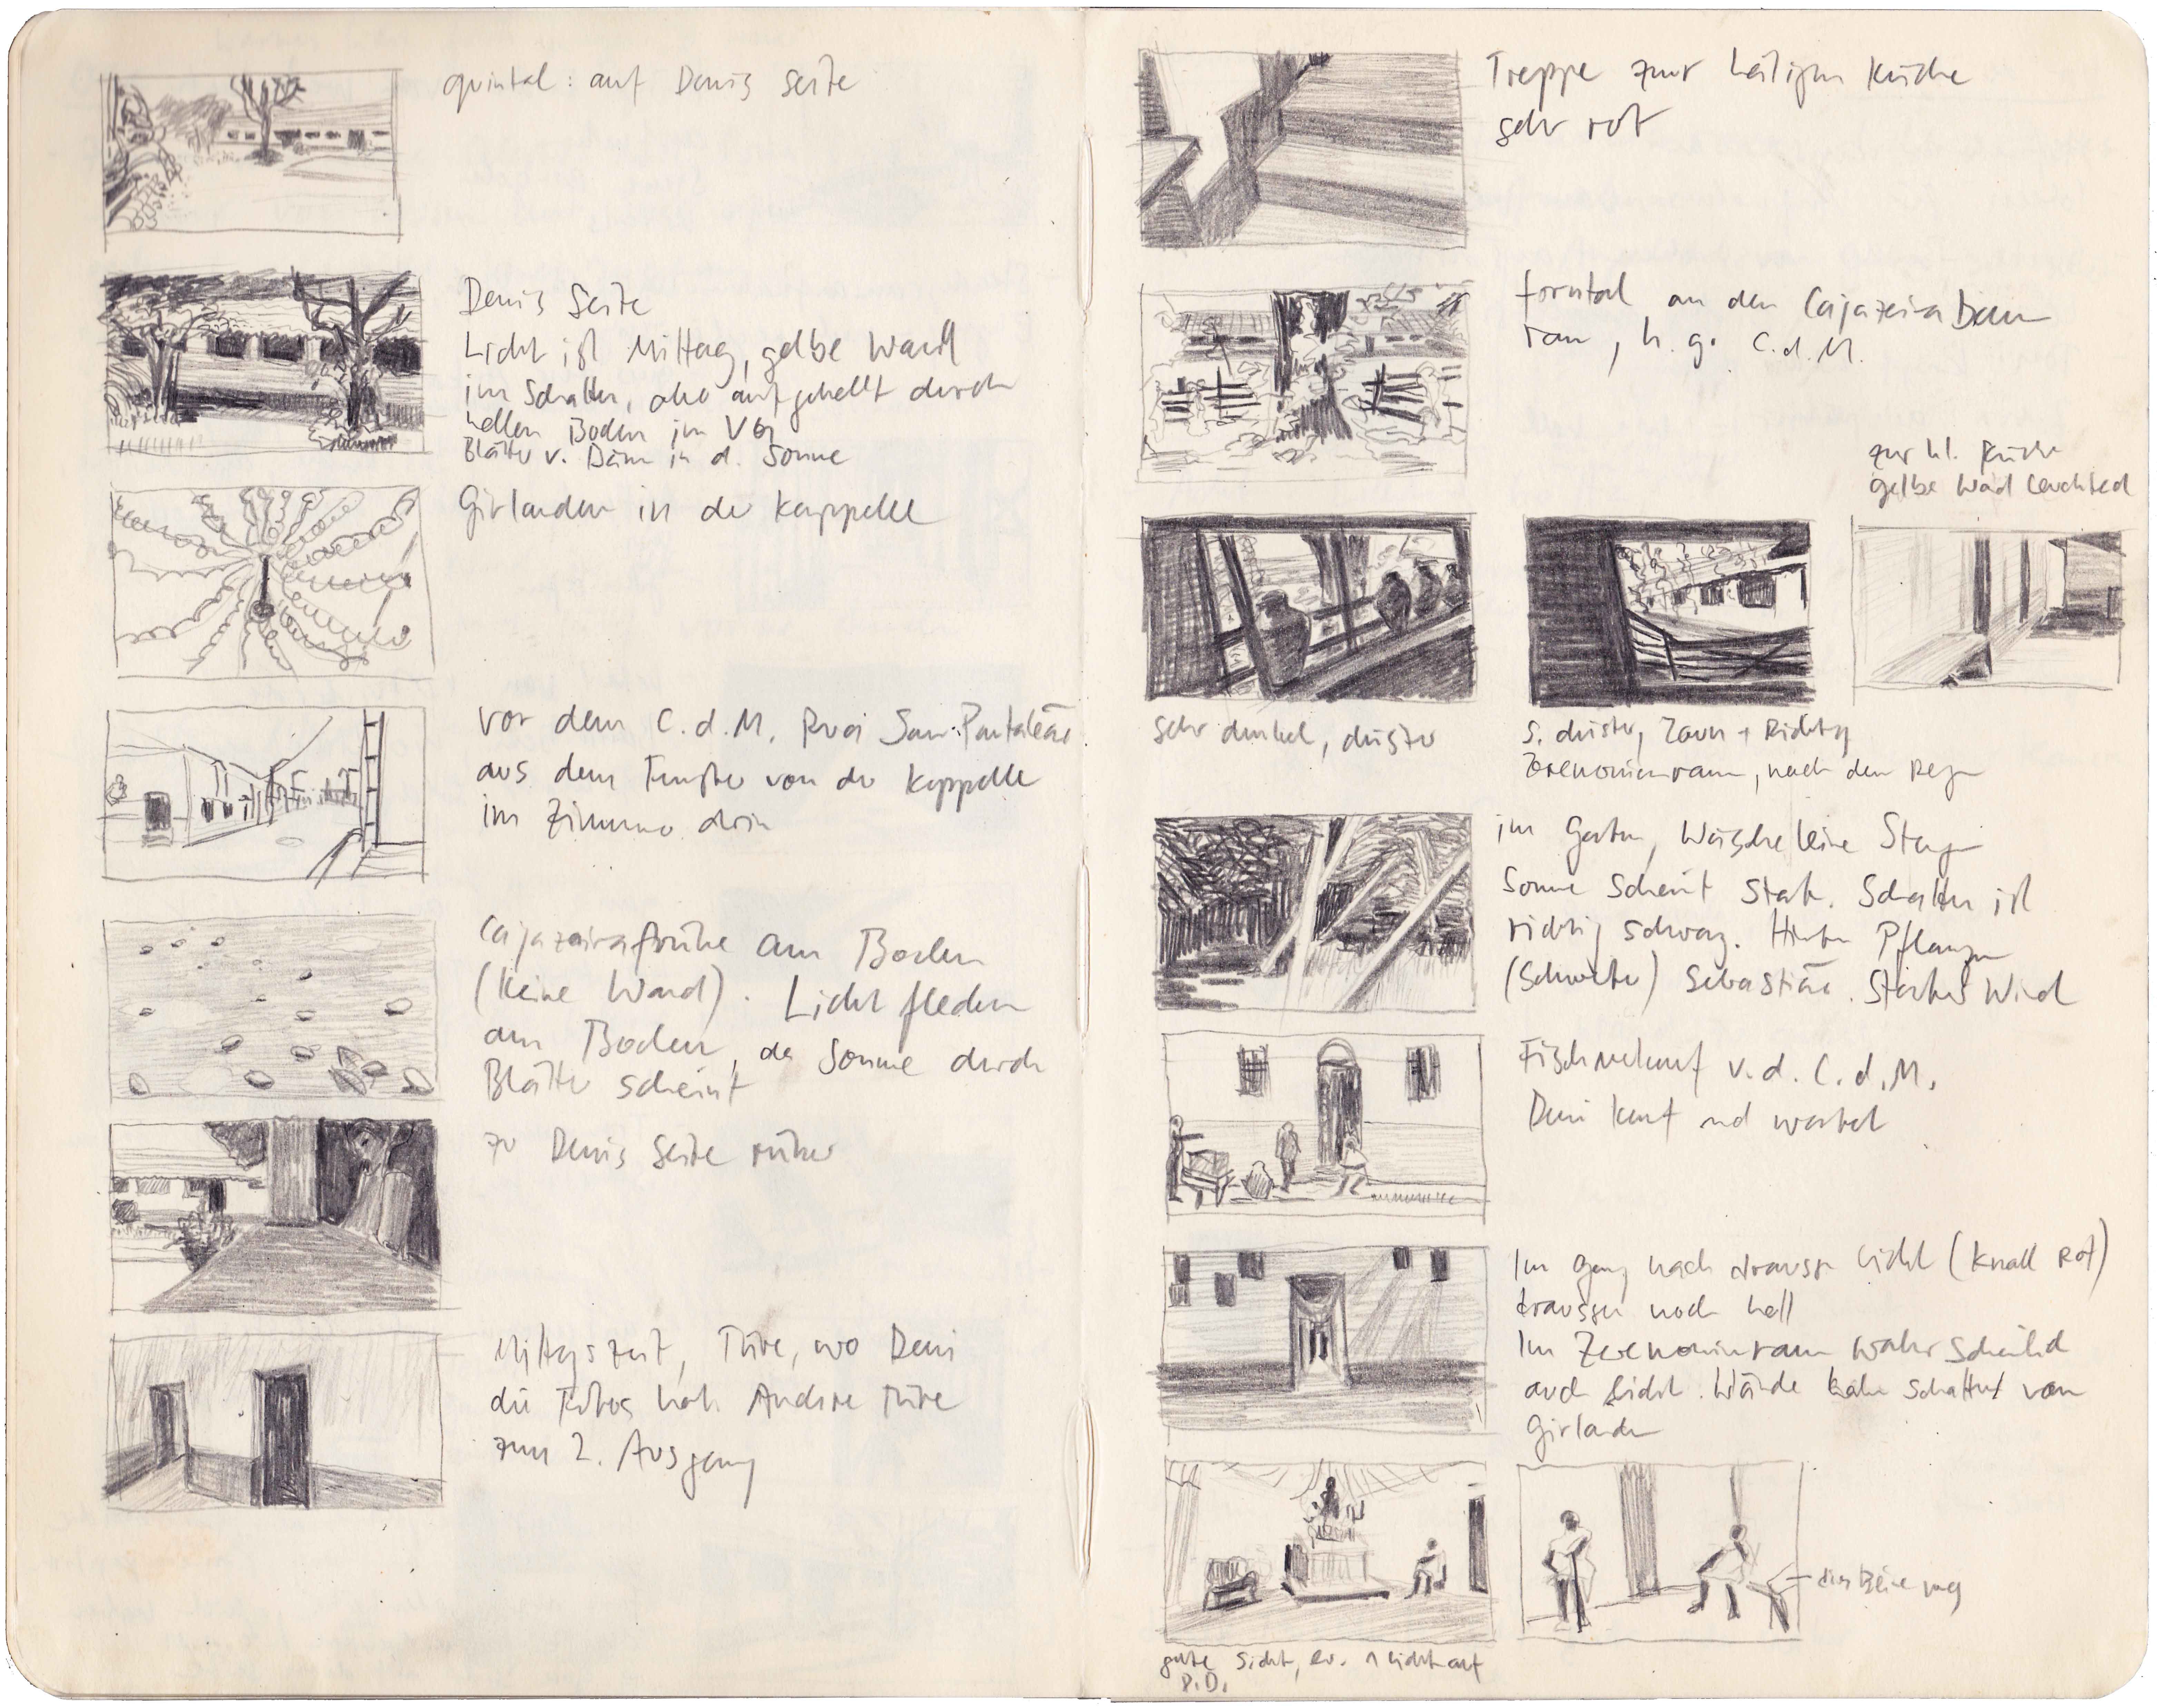 quintal: auf Denis Seite
Denis Seite
Licht ist Mittag, gelbe Wand
im Schatten, aber aufgehellt durch
hellen Boden im VG
Blätter v. Bäum in d. Sonne
Girlanden in der Kappelle
vor dem C.d.M. Rua San Pantaleão
aus dem Fenster von der Kappelle
im Zimmer drin
Cajazeirafrüchte am Boden
(keine Wand). Lichtflecken
am Boden, da Sonne durch
Blätter scheint
zu Denis Seite rüber
Mittagszeit, Türe, wo Deni
die Fotos hat. Andere Türe
zum 2. Ausgang
Treppe zur heiligen Küche
sehr rot
frontal an den Cajazeira Baum
ran, h.g. C.d.M.
zur hl. Küche
gelbe Wand leuchtend
sehr dunkel, düster
s. düster, Zaun + Richtg
Zeremonienraum, nach dem Regen
im Garten, Wäscheleine Stangen
Sonne scheint stark. Schatten ist
richtig schwarz. Hinten Pflanzen
Sebastião. Starker Wind
Fischverkauf v.d. C.d.M.
Deni kauft und wartet
Im Gang nach draussen Licht (Knall Rot)
draussen noch hell
Im Zeremonienraum wahrscheinlich
auch Licht. Wände haben Schatten von
Girlanden
gute Sicht, ev. Licht auf